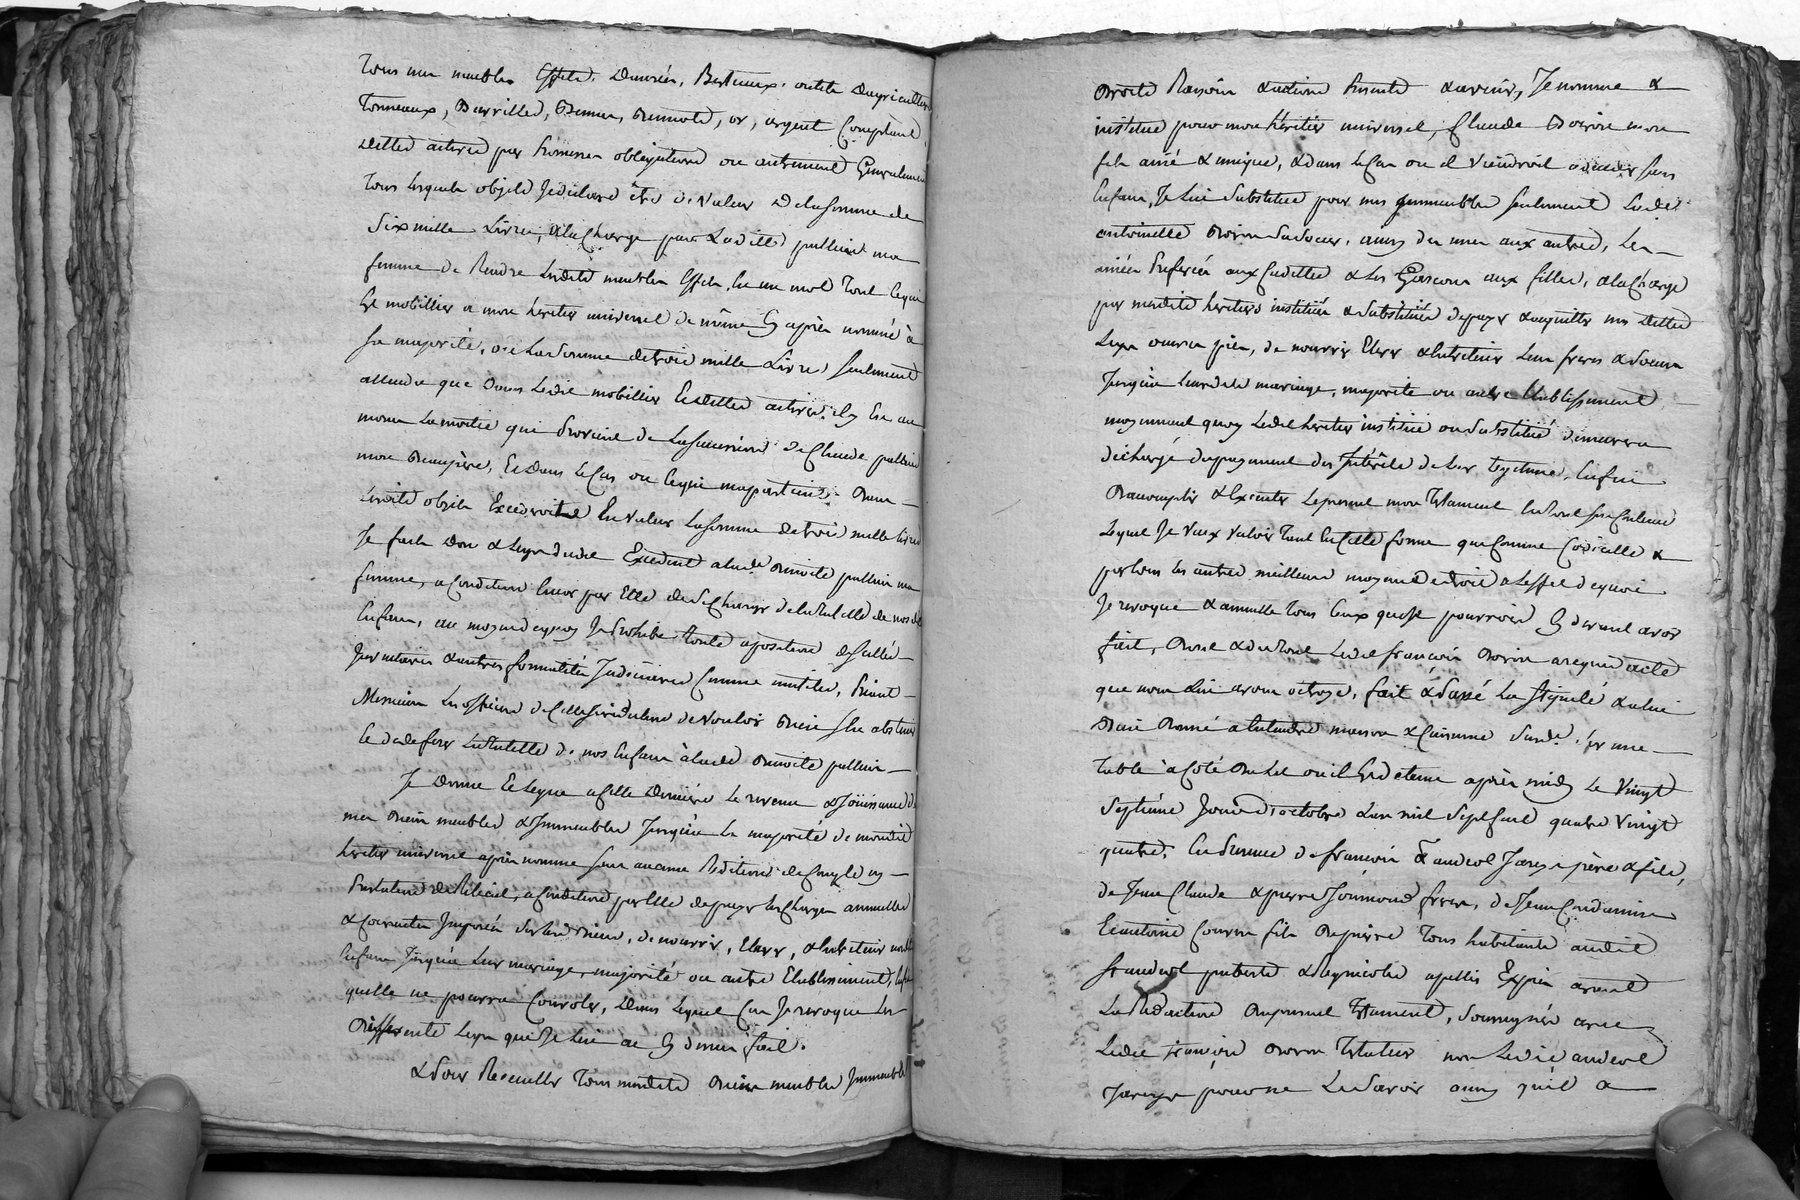 Tous mes meubles Effets, Denrées, Bestiaux, outils d'agriculture
Tonneaux, Barrilles, Bennes, Benoite, or, argent Comptant
dettes actives par promesses obligations ou autrement Generalement
Tous lesquels objets Je declare être de Valeur de la somme de
Six mille Livres, ala Charge par Ladite pullien ma
femme de Rendre Lesdits meubles Effets, En un mot Tout Ce qui
Est mobillier a mon heritier universel de même Cy après nommé à
Sa majorité, ou La Somme de trois mille Livres seulement
attendu que dans Ledit mobillier Et dettes actives il y En a au
moins La moitié qui provient de La succession de Claude pullien
mon Beaupère, Et dans le Cas ou Ce qui m'appartient
desdits objets Excederoit En valeur La somme de trois mille livres
Je fais Don & Legs dudit Excedent a lad.e Benoite pullien ma
femme, a Condition par Elle de Se Charger de la tutelle de nos d.
Enfans, au moyen de quoy Je prohibe toute aposition de scellés
Inventaire & autres formalités Judiciaires Comme inutiles, priant
Messieurs Les officiers de Cette Jurisdiction de Vouloir Bien s'en abstenir
Et de deferer La tutelle de nos Enfans à lad. Benoite pullien
Je Donne Et Legue a Cette Derniere Le revenu & Joüissance de
mes Biens meubles & Immeubles Jusqu'à La majorité de mondit
heritier universel après nommé sans aucune Redition de Compte ny
prestation de Reliquat, a Condition par Elle de payer les Charges annuelles
& Courantes Imposées sur lesd. Biens, de nourrir, Elever, & Entretenir nosdits
Enfans Jusqu'à Leur mariage, majorité ou autre Etablissement,
qu'elle ne pourra Convoler, Dans Lequel Cas Je revoque Les
differents Legs que Je Lui ai Cy dessus fait.
& pour Recueillir Tous mesdits Biens meubles Immeubles
Droits Raisons & actions presents & avenir, Je nomme &
institue pour mon heritier universel, Claude Boiron mon
fils ainé & unique, & dans le Cas ou il viendroit a deceder sans
Enfans, Je Lui Substitue pour mes Immeubles seulement Lad.e
antoinette Boiron Sa Soeur, ainsy des unes aux autres, Les
ainées preferées aux Cadettes & Les Garcons aux filles, ala Charge
par mesdits heritiers institués & Substitués de payer & acquitter mes dettes
Legs œuvres pies, de nourrir Elever & Entretenir Leurs freres & Soeurs
Jusqu'à Leurdit mariage, majorité ou autre Etablissement
moyennant quoy Ledit heritier institué ou Substitué demeurera
déchargé du payement des Intérêts de Leur Legitime, Enfin
D'accomplir & Executer Le present mon testament En tout son Contenu
Lequel Je Veux Valoir Tant En Cette forme que Comme Codicille &
par tous les autres meilleurs moyens de droit a l'effet de quoi
Je revoque & annulle Tous Ceux que Je pourrois Cy devant avoir
fait, Dont & du tout Ledit françois Boiron a requis acte
que nous Lui avons octroyé, fait & passé La Stipulé & a lui
Bien Donné a Entendre maison & Cuisine Sur une
Table à Coté du Lit ou il Est detenu après midy Le Vingt
Septième Jour d'octobre L'an mil Sept Cent quatre Vingt
quatre, En presence de françois & andeol Jarey père & fils,
de Jean Claude & pierre Joümond freres, de Jean Condamin
Et antoine Courra fils De pierre Tous habitants audit
St andeol puberes & Regnicoles apellés Exprès avant
La Rédaction Du present testament, Soussignés avec
Ledit françois Boiron testateur non Ledit andeol
Jarey pour ne Le Savoir ainsy qu'il a